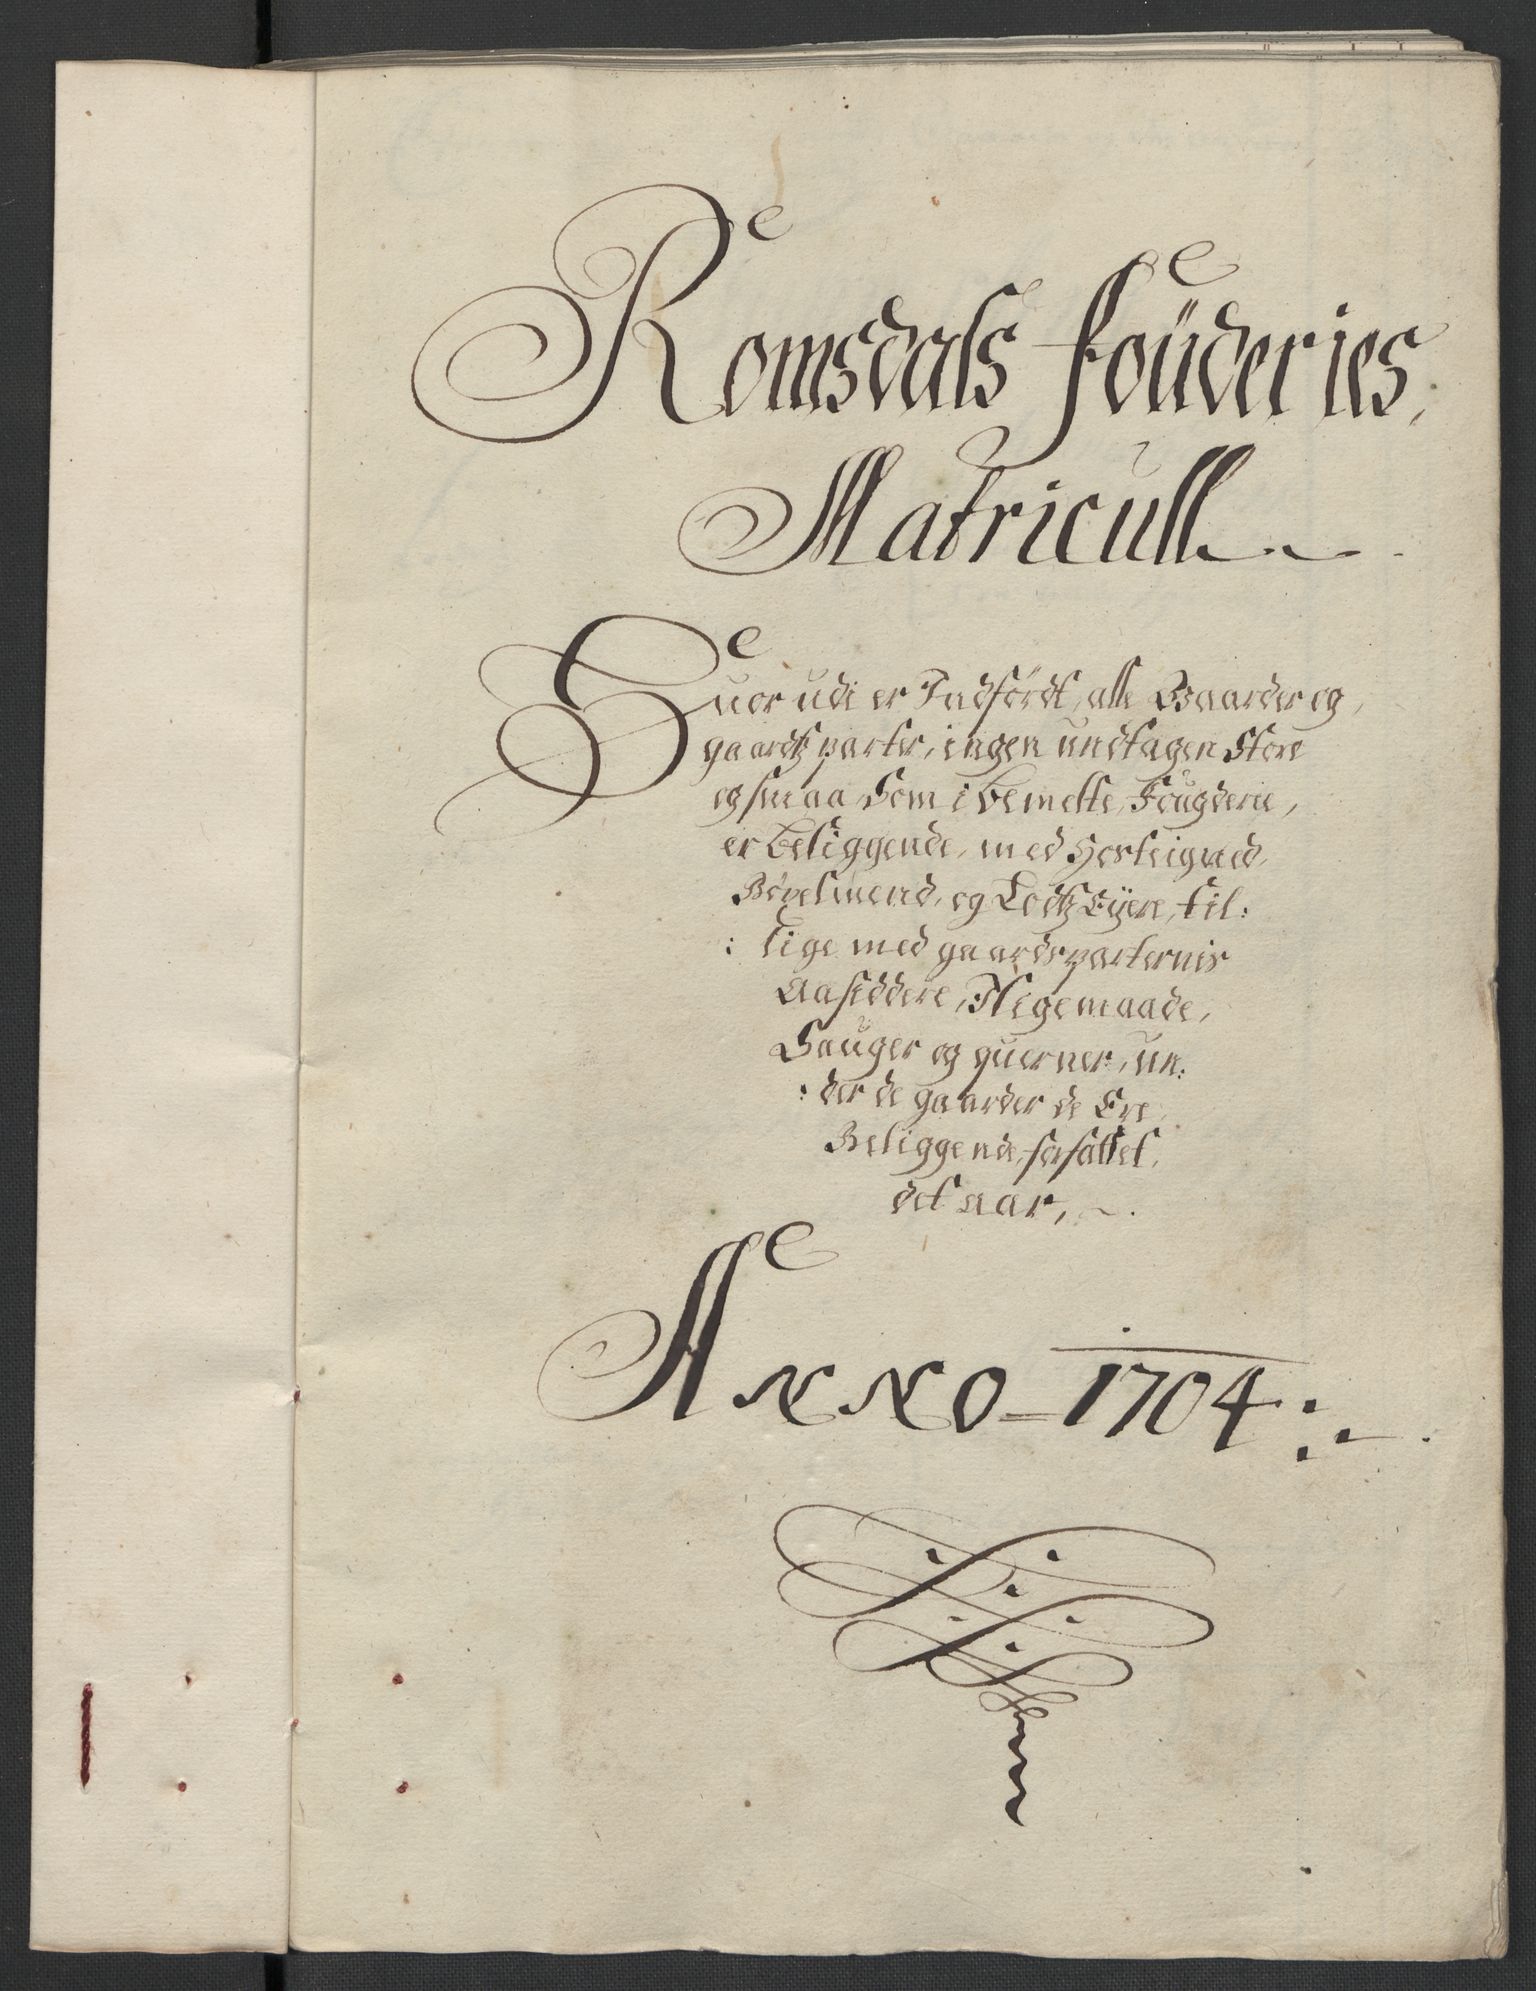 Romsdals fouderies,
Matricull
Huor udi er Indfördt, alle Gaarder og,
gaardtz parter, ingen undtagen Store
og smaa Som i bemelte, Fougderie,
er beliggende, med Hosteigned,
Böxelmend, og Lodtz Eÿere, til:
: lige med gaardsparternis
Aasiddere, Iligemaade,
Sauger og querner, un:
: der de gaarder de Ere
Beliggende, forfattet,
det aar,
Anno 1704